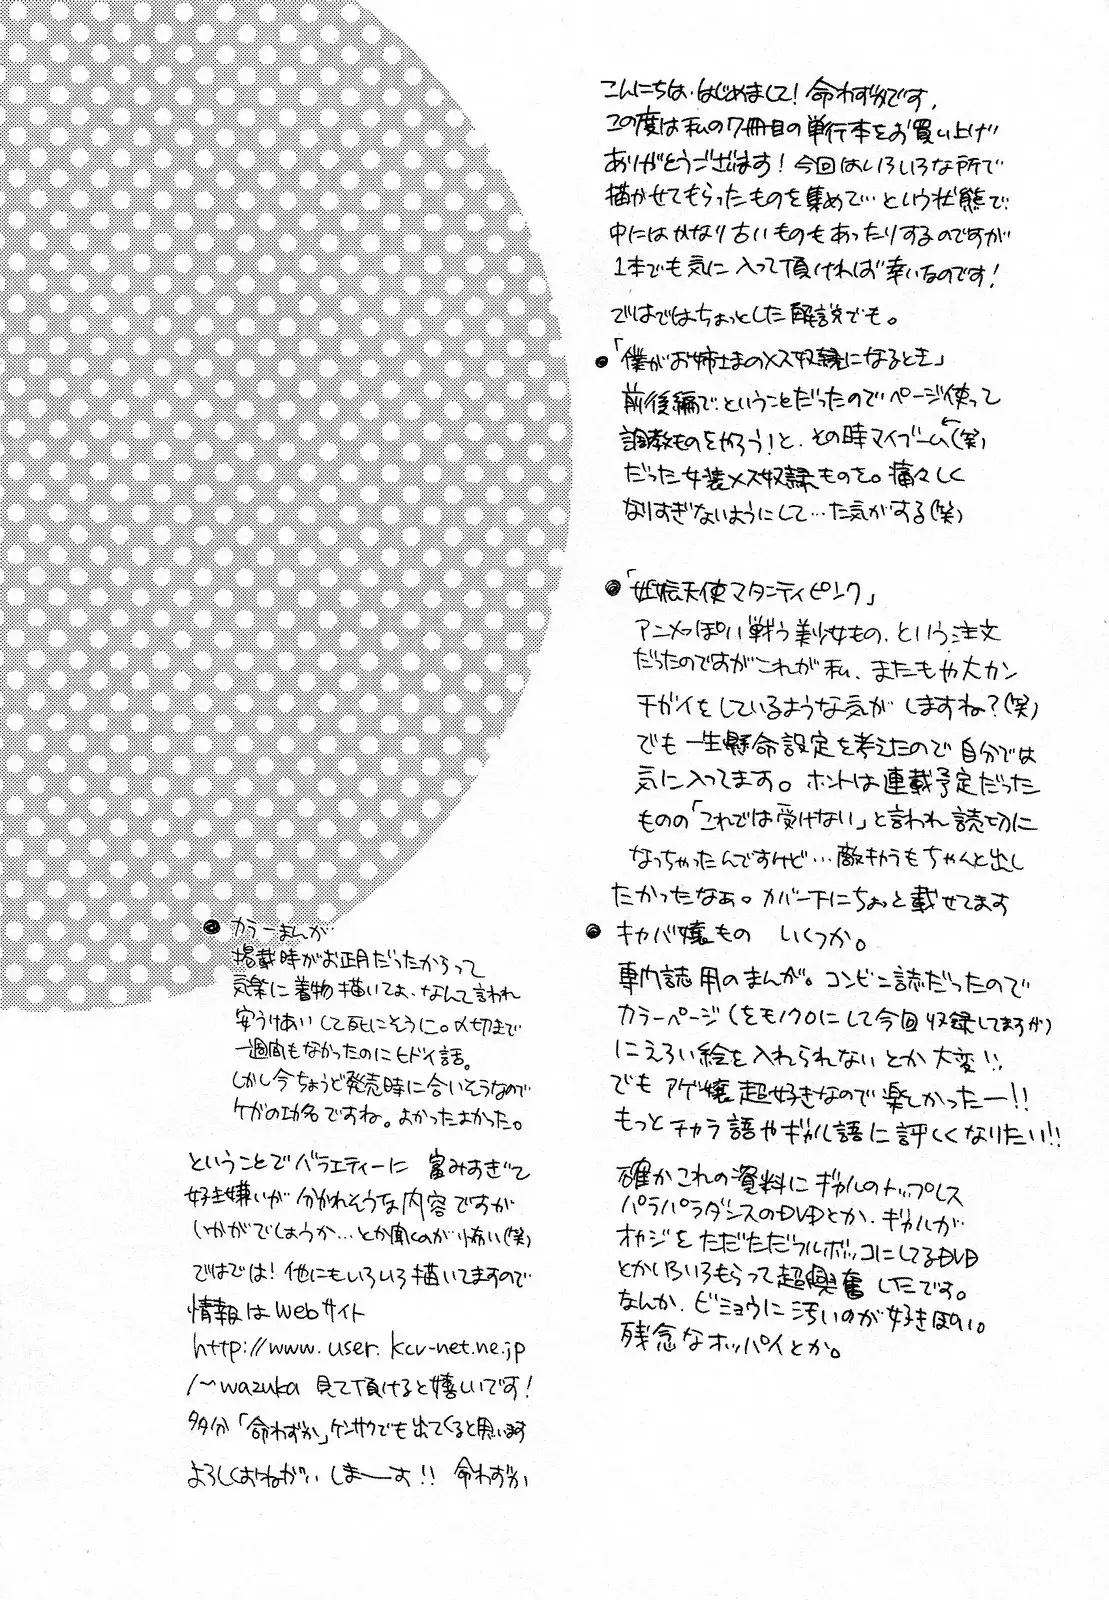 こんにちは、はじめまして!命わずかです。
この度は私の7冊目の単行本をお買い上げ
ありがとうございます!今回はいろいろな所で
描かせてもらったものを集めて…という状態で
中にはかなり古いものもあったりするのですが
1本でも気に入って頂ければ幸いなのです!
ではではちょっとした解説でも。
●「僕がお姉さまのメス奴隷になるとき」
前後編で、ということだったのでページ使って
調教ものをやろう!と、その時マイブーム(笑)
だった女装メス奴隷ものを。痛々しく
なりすぎないようにして…た気がする(笑)
●「妊娠天使マタニティピンク」
アニメっぽい戦う美少女もの、という注文
だったのですがこれが私、またもや大カン
チガイをしているような気がしますね?(笑)
でも一生懸命設定を考えたので自分では
気に入ってます。ホントは連載予定だった
ものの「これでは受けない」と言われ読切に
なっちゃったんですけど…敵キャラもちゃんと出し
たかったなぁ。カバー下にちょっと載せてます
●キャバ嬢もの いくつか。
専門誌用のまんが。コンビニ誌だったので
カラーページ(をモノクロにして今回収録してますが)
にえろい絵を入れられないとか大変!!
でもアゲ嬢超好きなので楽しかったー!!
もっとチャラ語やギャル語に詳しくなりたい!!
確かこれの資料にギャルのトップレス
パラパラダンスのDVDとか、ギャルが
オヤジをただただフルボッコにしてるDVD
とかいろいろもらって超興奮したです。
なんか、ビミョウに汚いのが好きっぽい。
残念なオッパイとか。
●カラーまんが
掲載時がお正月だったからって
気楽に着物描いてよ、なんて言われ
安うけあいして死にそうに。〆切まで
一週間もなかったのにヒドイ話。
しかし今ちょうど発売時に合いそうなので
ケガの功名ですね。よかったよかった。
ということでバラエティーに富みすぎて
好き嫌いが分かれそうな内容ですが
いかがでしょうか…とか聞くのが怖い(笑)
ではでは!他にもいろいろ描いてますので
情報はWebサイト
http://www.user.kcv-net.ne.jp
/~wazuka 見て頂けると嬉しいです!
多分「命わずか」ケンサクでも出てくると思います
よろしくおねがいしまーす!! 命わずか